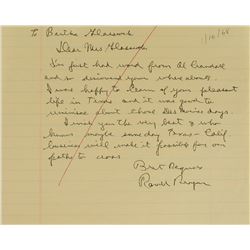 To Bertha
1/10/68
Dear Mrs
I've just had word from Al Crandall
and so discovered your whereabouts.
I was happy to learn of your pleasant
life in Texas and it was good to
reminisce about those Des Moines days
I wish you the very best & who
knows maybe someday Texas - Calif.
business will make it possible for our
paths to cross
Best Regards
Ronald Reagan